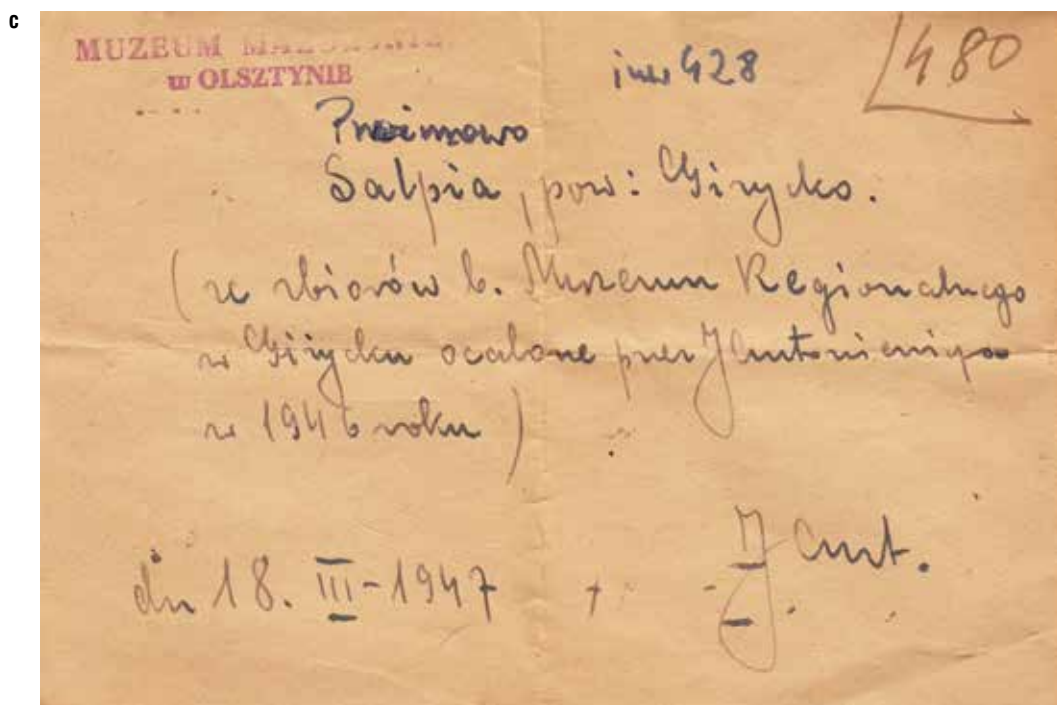 c
MUZEUM MAZURSKIE
w OLSZTYNIE
inw 428
480
Salpia, pow: Giżycko.
(ze zbiorów b. Muzeum Regionalnego
w Giżycku ocalone przez J Antoniewicza
w 1946 roku)
dn 18. III-1947
J Ant.